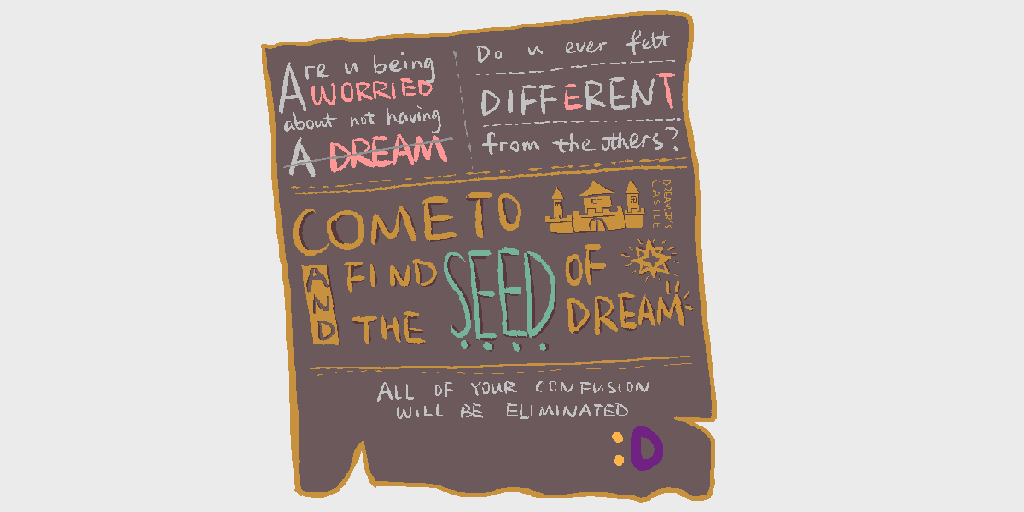 Are u being
WORRIED
about not having
A DREAM
Do u ever felt
DIFFERENT
from the others?
COME TO
DREAMER'S
CASTLE
AND
FIND
THE
SEED
OF
DREAM
ALL OF YOUR CONFUSION
WILL BE ELIMINATED
:D